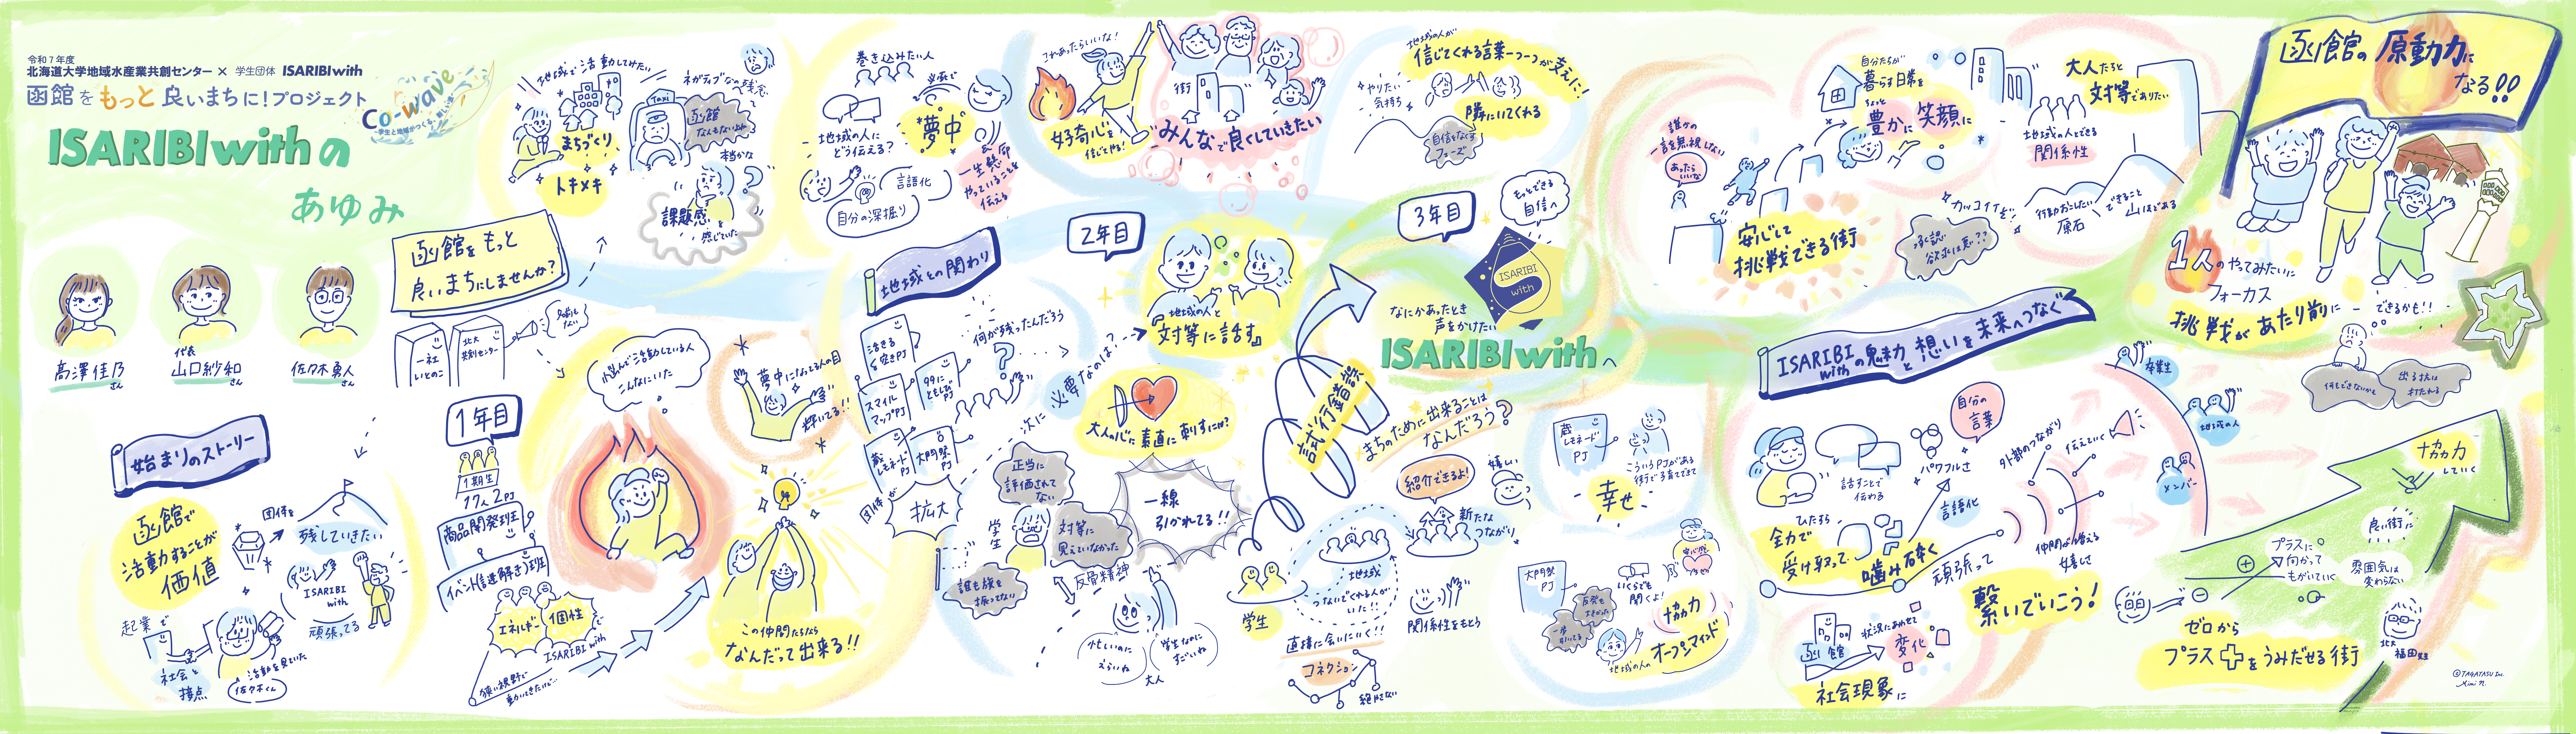 令和7年度
北海道大学地域水産業共創センター × 学生団体 ISARIBI with
函館をもっと良いまちに!プロジェクト
Co-wave
ISARIBI withの
あゆみ
高澤佳乃さん
代表
山口紗和さん
佐々木勇人さん
函館をもっと
良いまちにしませんか?
一社
いとのこ
北大
共創センター
始まりのストーリー
函館で
活動することが
価値
団体を
残していきたい
ISARIBI
with
頑張ってる
起業で
社会と
接点
活動を見ていた
佐々木くん
地域で活動してみたい
まちづくり
トキメキ
Taxi
ネガティブな
函館
なんもないよ
本当かな
課題感を
感じていた
1年目
1期生
17人2PJ
商品開発班
イベント(謎解き)班
エネルギー
個性で
ISARIBI with
狭い視野で
こんなにいた
夢中になってる人の目
輝いてる!!
この仲間たちなら
なんだって出来る!!
巻き込みたい人
地域の人に
どう伝える?
言語化
自分の深掘り
必死で
夢中
&
一生懸命
やっていることを
伝える
地域との関わり
活きる
スマイル
マップPJ
蔵
レモネード
PJ
大門祭
PJ
団体が
拡大
何が残ったんだろう
?
次に
必要なのは?
これあったらいいな!
好奇心を
信じてやる!
街
みんなで良くしていきたい
2年目
『地域の人と
対等に話す』
大人の心に素直に刺すには?
正当に
評価されて
ない
学生
対等に
見えていなかった
誰も旗を
振ってない
反骨精神
一線
引かれてる!!
忙しいのに
えらいね
学生なのに
すごいね
大人
試行錯誤
地域の人が
信じてくれる言葉一つ一つが支えに!
やりたい
気持ち
隣にいてくれる
自信をなくす
フェーズ
3年目
もっとできる
自信へ
ISARIBI
with
なにかあったとき
声をかけたい
ISARIBI withへ
まちのために出来ることは
なんだろう?
紹介できるよ!
嬉しい
新たな
つながり
地域
つないでくれる人が
いた!!
学生
直接に会いにいく!!
コネクション
絶やさない
関係性をもとう
蔵
レモネード
PJ
こういうPJがある
街で子育てできて
幸せ
大門祭
PJ
いくらでも
聞くよ!
協力
オープンマインド
地域の人の
誰かの
一言を無視しない
あったら
いいな
安心して
挑戦できる街
自分たちが
暮らす日常を
ちょっと
豊かに笑顔に
大人たちと
対等でありたい
地域の人とできる
関係性
カッコイイを
承認
欲求は悪??
行動おこしたい
原石
できること
山ほどある
ISARIBI withの魅力と想いを未来へつなぐ
話すことで
伝わる
ひたすら
全力で
受け取って
噛み砕く
言語化
パワフルさ
自分の
言葉
外部のつながり
伝えていく
仲間が増える
嬉しさ
頑張って
繋いでいこう!
函館
状況にあわせて
変化
社会現象に
卒業生
地域の人
メンバー
函館の原動力に
なる!!
1人のやってみたいに
フォーカス
挑戦があたり前に
できるかも!!
何もできないかも
出る杭は
打たれる
協力
していく
良い街に
プラスに
向かって
もがいていく
雰囲気は
変わらない
ゼロから
プラス+をうみだせる街
北大
福田先生
©TAGATASU Inc.
Mimi N.